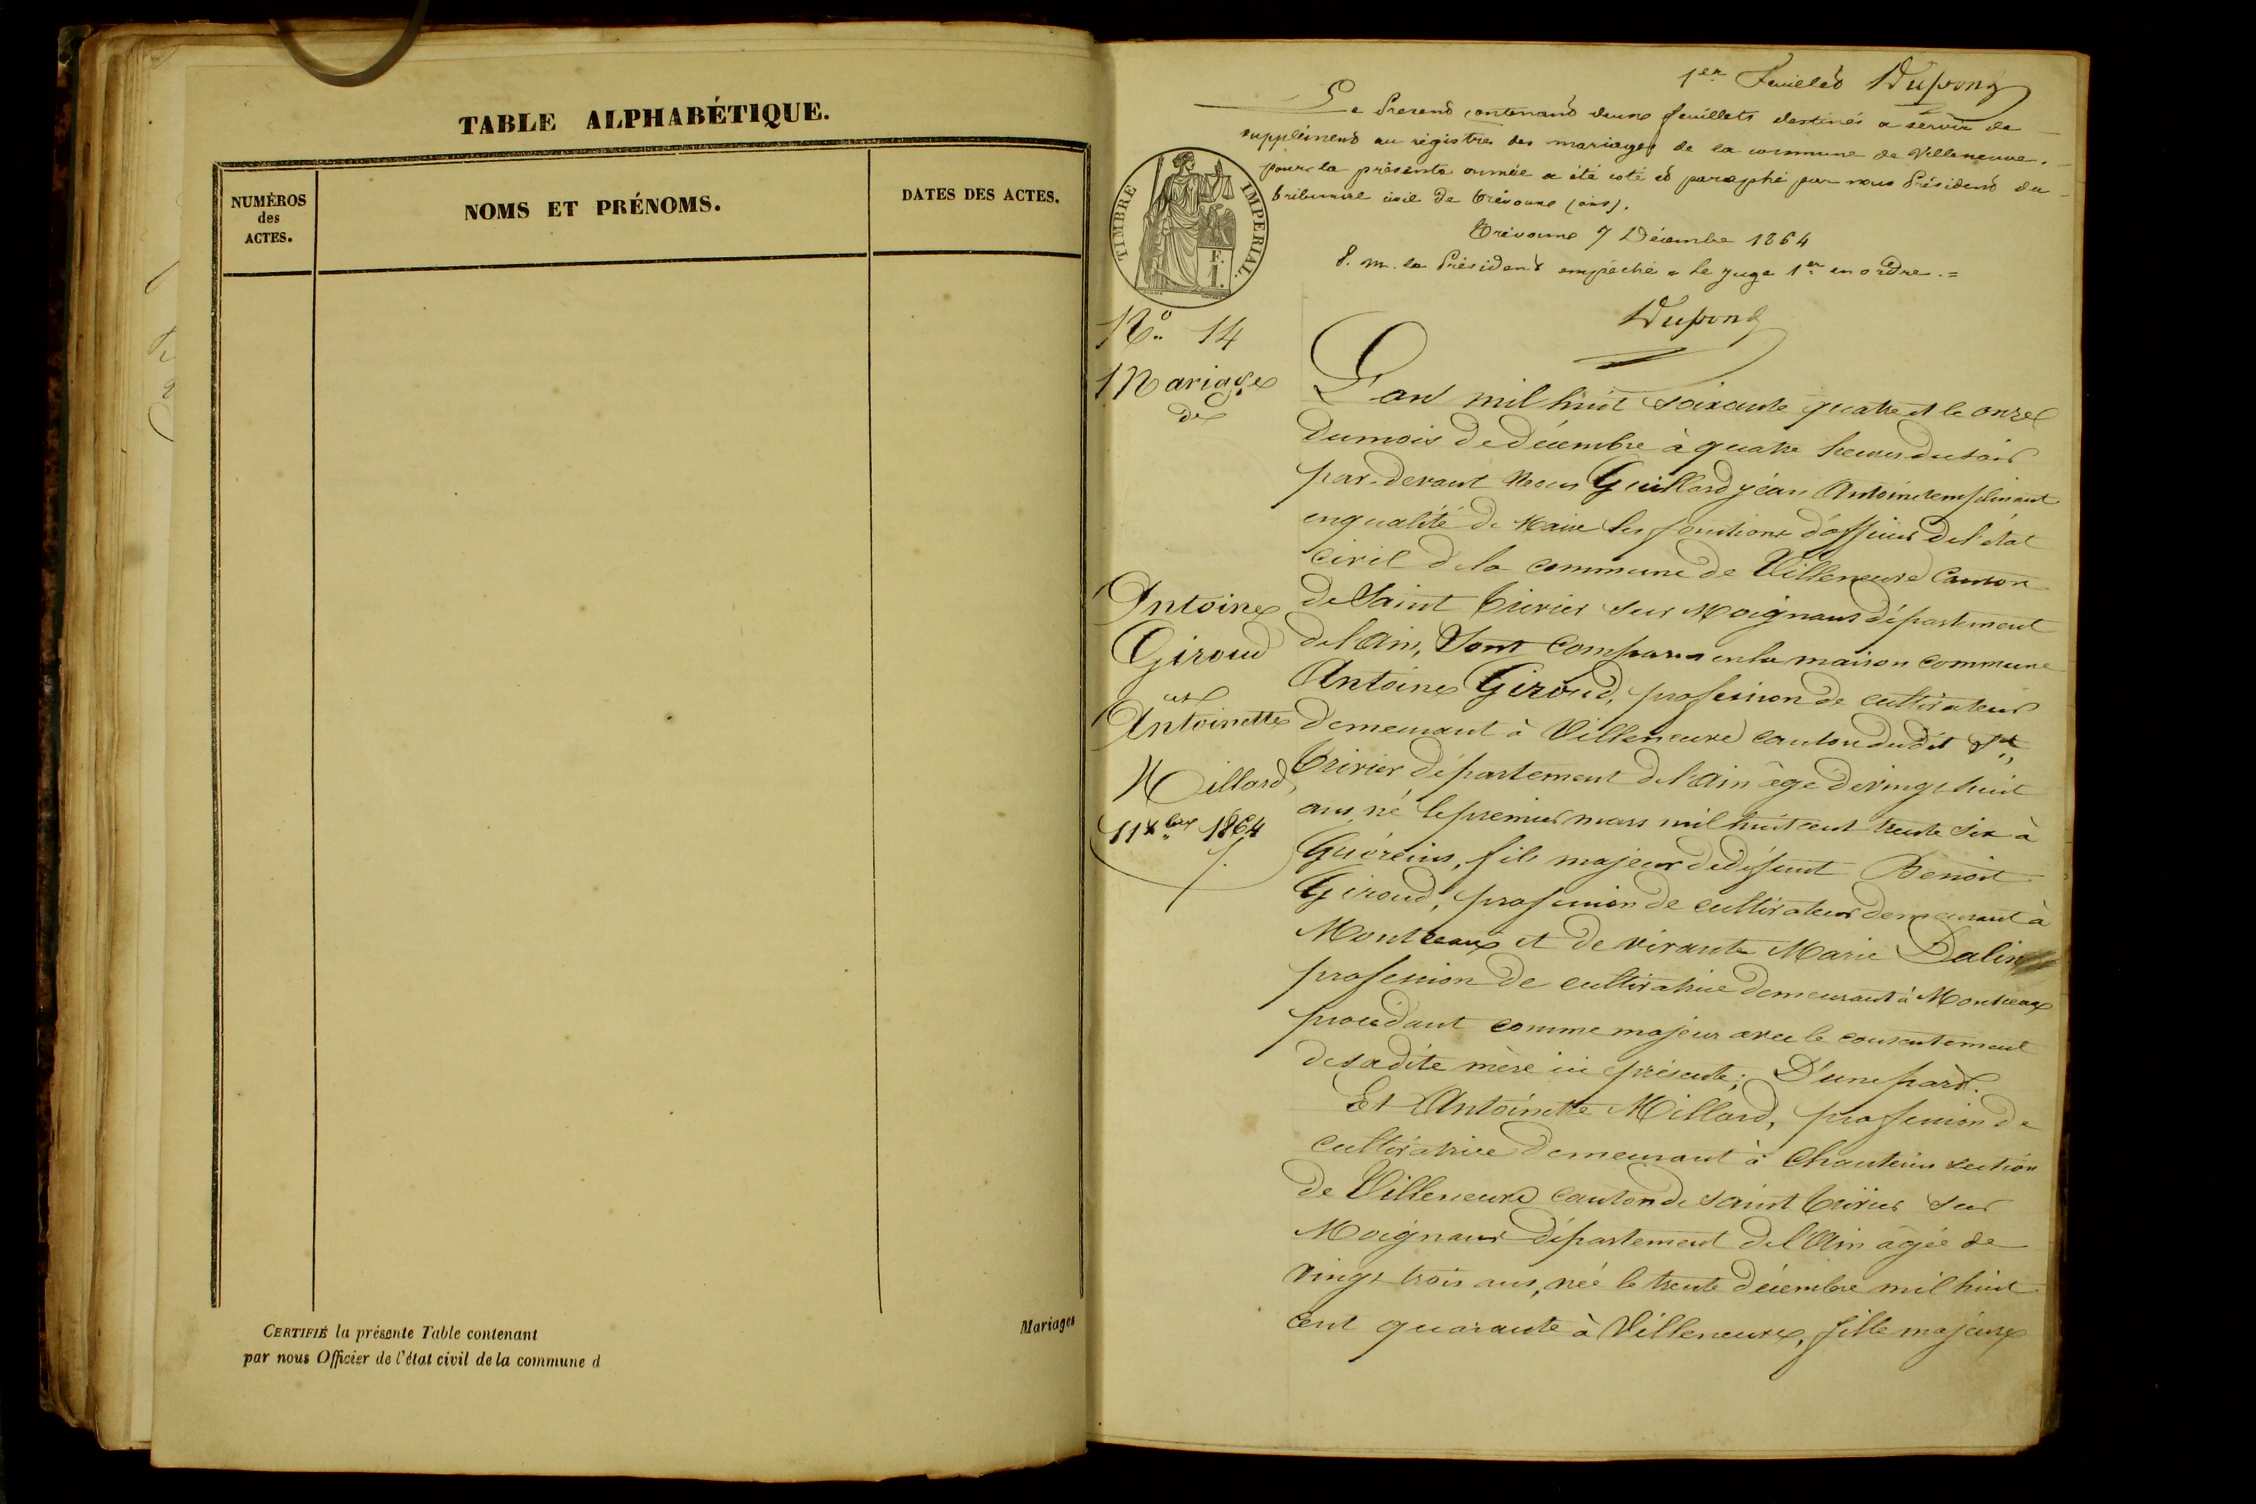 TABLE ALPHABÉTIQUE.
NUMÉROS
des
ACTES.
NOMS ET PRÉNOMS.
DATES DES ACTES.
CERTIFIÉ la présente Table contenant
par nous Officier de l'état civil de la commune d
Mariages
1er Feuillet Dupond
Le présent contenant deux feuillets destinés à servir de
supplément au régistre des mariages de la commune de Villeneuve.
pour la présente année a été coté et paraphé par nous Président du
tribunal civil de Trévoux (ain).
Trévoux 7 Décembre 1864
P. M. le Président empêché le Juge 1er en ordre.=
Dupond
TIMBRE IMPERIAL.
F.
1.
No 14
Mariage
de
Antoine
Giroud
et
Antoinette
Millard
11 Xbre 1864
L'an mil huit soixante quatre et le onze
du mois de décembre à quatre heures du soir
par-devant Nous Guillard jéan Antoine remplissant
en qualité de Maire les fonctions d'officier de l'état
civil de la commune de Villeneuve Canton
de Saint Trivier sur Moignans département
de l'Ain, Sont comparus en la maison commune
Antoine Giroud, profession de cultivateur
demeurant à Villeneuve canton dudit St,,
Trivier département de l'Ain âgé de vingt huit
ans, né le premier mars mil huit cent trente six à
Guéreins, fils majeur de défunt Benoit
Giroud, profession de cultivateur demeurant à
Montceaux et de vivante Marie Dalin
profession de cultivatrice demeurant à Montceaux
procédant comme majeur avec le consentement
de sadite mère ici présente; D'une part.
Et Antoinette Millard, profession de
cultivatrice demeurant à Chanteins section
de Villeneuve canton de Saint Trivier sur
Moignans département de l'Ain âgée de
vingt trois ans, née le trente décembre mil huit
cent quarante à Villeneuve, fille majeure